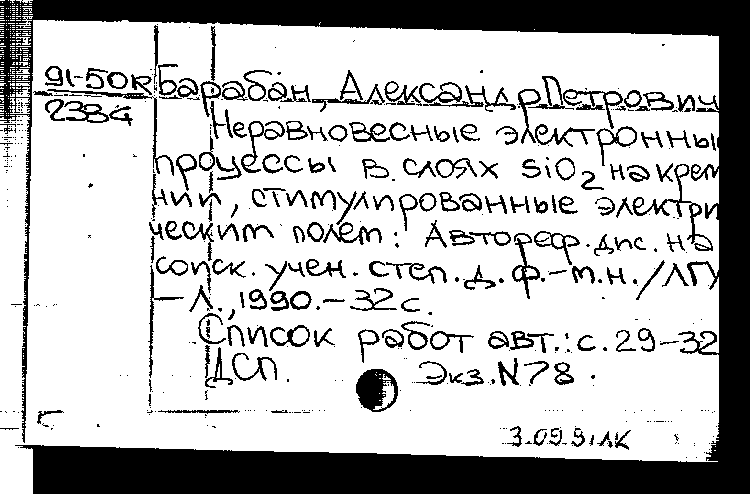 91-50к Барабан, Александр Петрович
2384
Неравновесные электронны
процессы в слоях SiO2 на крем
нии, стимулированные электри
ческим полем: Автореф. дис. на
соиск. учен. степ. д. ф.-м.н./ЛГУ
- Л., 1990.-32 с.
Список работ авт.: с. 29-32
ДСП. Экз. N78.
3.09.91 ЛК